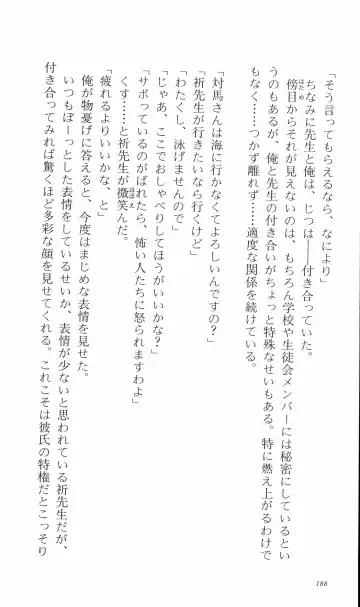 「そう言ってもらえるなら、なにより」
ちなみに先生と俺は、じつは――付き合っていた。
傍目からそれが見えないのは、もちろん学校や生徒会メンバーには秘密にしているとい
うのもあるが、俺と先生の付き合いがちょっと特殊なせいもある。特に燃え上がるわけで
もなく……つかず離れず……適度な関係を続けている。
「対馬さんは海に行かなくてよろしいんですの?」
「祈先生が行きたいなら行くけど」
「わたくし、泳げませんので」
「じゃあ、ここでおしゃべりしてたほうがいいかな?」
「サボっているのがばれたら、怖い人たちに怒られますわよ」
くす……と祈先生が微笑んだ。
「疲れるよりいいかな、と」
俺が物憂げに答えると、今度はまじめな表情を見せた。
いつもぼーっとした表情をしているせいか、表情が少ないと思われている祈先生だが、
付き合ってみれば驚くほど多彩な顔を見せてくれる。これこそは彼氏の特権だとこっそり
188